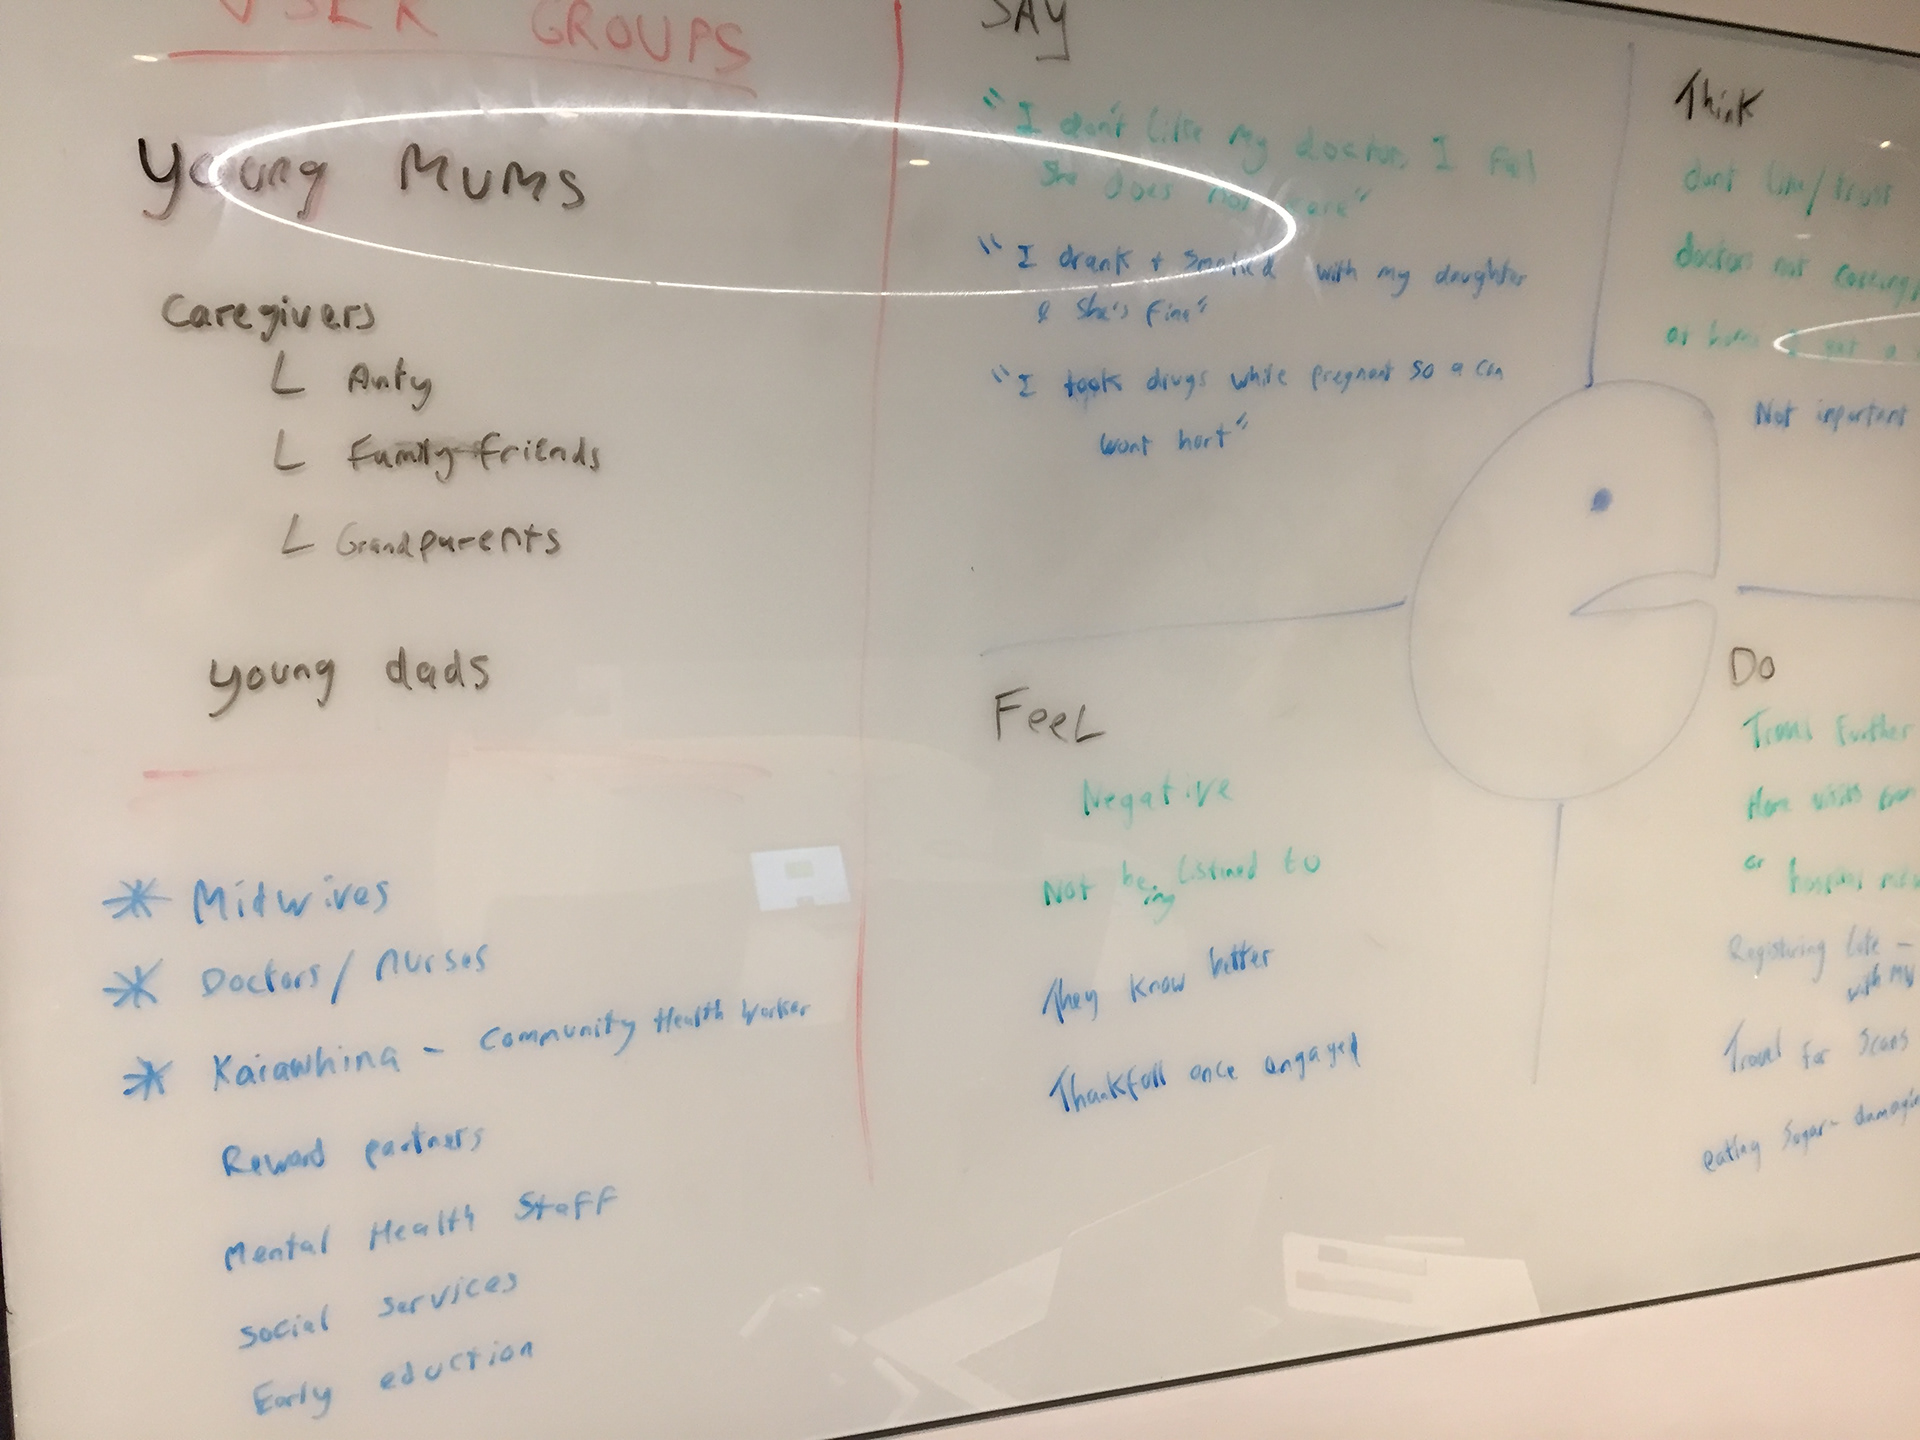 USER GROUPS
Young Mums
Caregivers
L Anty
L Family friends
L Grandparents
young dads
* Midwives
* Doctors / nurses
* Kaiawhina - Community Health Worker
Reward partners
Mental Health Staff
Social services
Early eduction
SAY
"I don't like my doctor, I
She does not care"
"I drank + smoked with my daughter
& she's fine"
"I took drugs while pregnant so a can
wont hurt"
Think
dont like/trust
doctors not
or
Not important
Feel
Negative
Not being listined to
They know better
Thankfull once engaged
Do
Travel further
Home visits
or hospital
Registuring late -
with
Travel for scans
eating sugar -